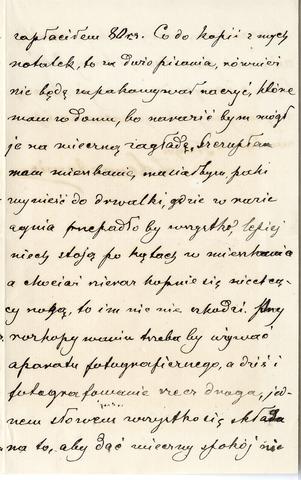 zapłaciłem 80 cs. Co do kopii z mych
notatek, to za dużo pisania, również
nie będę zapakowywał naczyń, które
mam w domu, bo narazić bym mógł
je na wieczną zagładę. Szczupłem
mam mieszkanie, musiałbym, paki
wynieść do drwalki, gdzie w razie
ognia przepadło by wszystko, lepiej
niech stoją po kątach w mieszkaniu
a chociaż nieraz kopnie się niechcą-
cy nogą, to im nic nie szkodzi. Przy
rozkopywaniu trzeba by używać
aparatu fotograficznego, a dziś i
fotografowanie rzecz droga, jed-
nem słowem wszystko się składa
na to, aby dać wieczny spokój nie